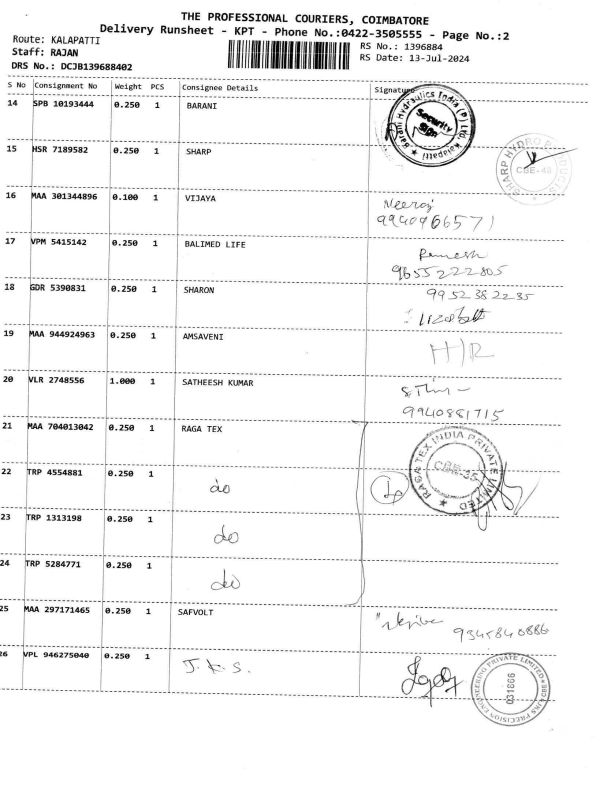 THE PROFESSIONAL COURIERS, COIMBATORE
Delivery Runsheet - KPT - Phone No.:0422-3505555 - Page No.:2
Route: KALAPATTI
RS No.: 1396884
Staff: RAJAN
RS Date: 13-Jul-2024
DRS No.: DCJB139688402
S No Consignment No Weight PCS Consignee Details Signature
14 SPB 10193444 0.250 1 BARANI
Barani Hydraulics India (P) Ltd. Kalapatti
Security Sign
15 HSR 7189582 0.250 1 SHARP
SHARP HYDRO PRODUCTS
CBE-48
16 MAA 301344896 0.100 1 VIJAYA
Neeraj
9940966571
17 VPM 5415142 0.250 1 BALIMED LIFE
Ramesh
9655222805
18 GDR 5390831 0.250 1 SHARON
9952382235
19 MAA 944924963 0.250 1 AMSAVENI
H/R
20 VLR 2748556 1.000 1 SATHEESH KUMAR
9940881715
21 MAA 704013042 0.250 1 RAGA TEX
RAGA TEX INDIA PRIVATE LIMITED
CBE-35
22 TRP 4554881 0.250 1 do
23 TRP 1313198 0.250 1 do
24 TRP 5284771 0.250 1 do
25 MAA 297171465 0.250 1 SAFVOLT
9345840886
26 VPL 946275040 0.250 1 J.K.S.
PRECISION ENGINEERING PRIVATE LIMITED
031866